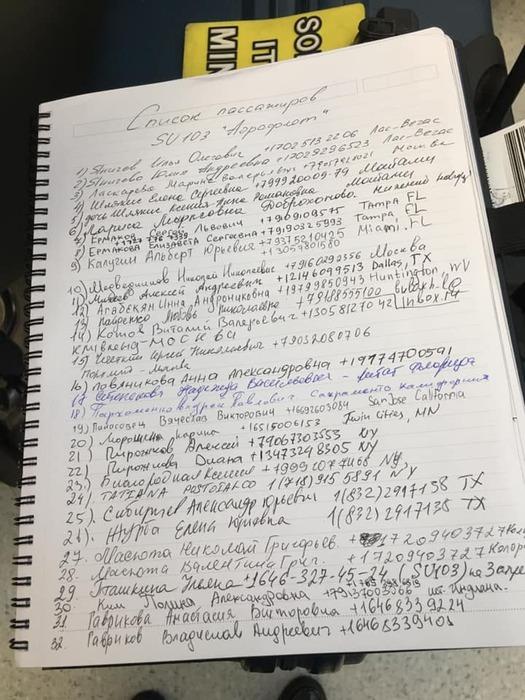 SOL
IT
MIN
Список пассажиров
SU103 "Аэрофлот"
1) Янигов Илья Олегович +17025132206 Лас-Вегас
2) Янигова Юлия Андреевна +17029296523 Лас-Вегас
3) Ласкарева Марина Валерьевна Москва
4) Шляжис Елена Сергеевна +79992000979 Майами
5) дочь Шляжис Ксения Анна Романовна Майами
6) Лариса Марковна Доброхотова. Нижний Новгород
7) Ермаков Сергей Львович +7909109575 Tampa FL
8) Ермакова Елизавета Сергеевна +79190325993 Tampa, FL
9) Калугин Альберт Юрьевич +79375210425 Miami. FL
+13057801580
10) Медведников Николай Николаевич +79160292356 Москва
11) Алексей Андреевич +12146099513 Dallas, TX
12) Агабекян Инна Андрониковна +19799850943 Huntington, WV
13) Любовь Николаевна +79188555100
14) Котов Виталий Валерьевич +13058127042 inbox.ru
Москва
15) Николаевич +79032080706
16) Ловяникова Анна Александровна +19174700591
17 Надежда Васильевна - Флорида
18) Пархоменко Павлович Сакраменто Калифорния
19) Вячеслав Викторович +16692603084 San Jose California
20) Мирошина +16515006153 Twin cities, MN
21) Пирожков Алексей +79067303553 NY
22) Пирожкова Диана +13473248305 NY
23) Благородная Ксения +79992077468 NY
24. TATIANA 1(718)9155891 NY
25). Сибирцев Александр Юрьевич 1(832)2917138 TX
26). Журба Елена Юрьевна 1(832)2917138 TX
27. Маслюта Николай Григорьев. +17209403727
28. Маслюта Валентина Григ. +17209403727
29. Ульяна 1646-327-45-24 (SU103)
30. Ким Полина Александровна +79137003966 шт. Индиана.
31 Гаврикова Анастасия Викторовна +16468339224
32. Гавриков Владислав Андреевич +16468339401